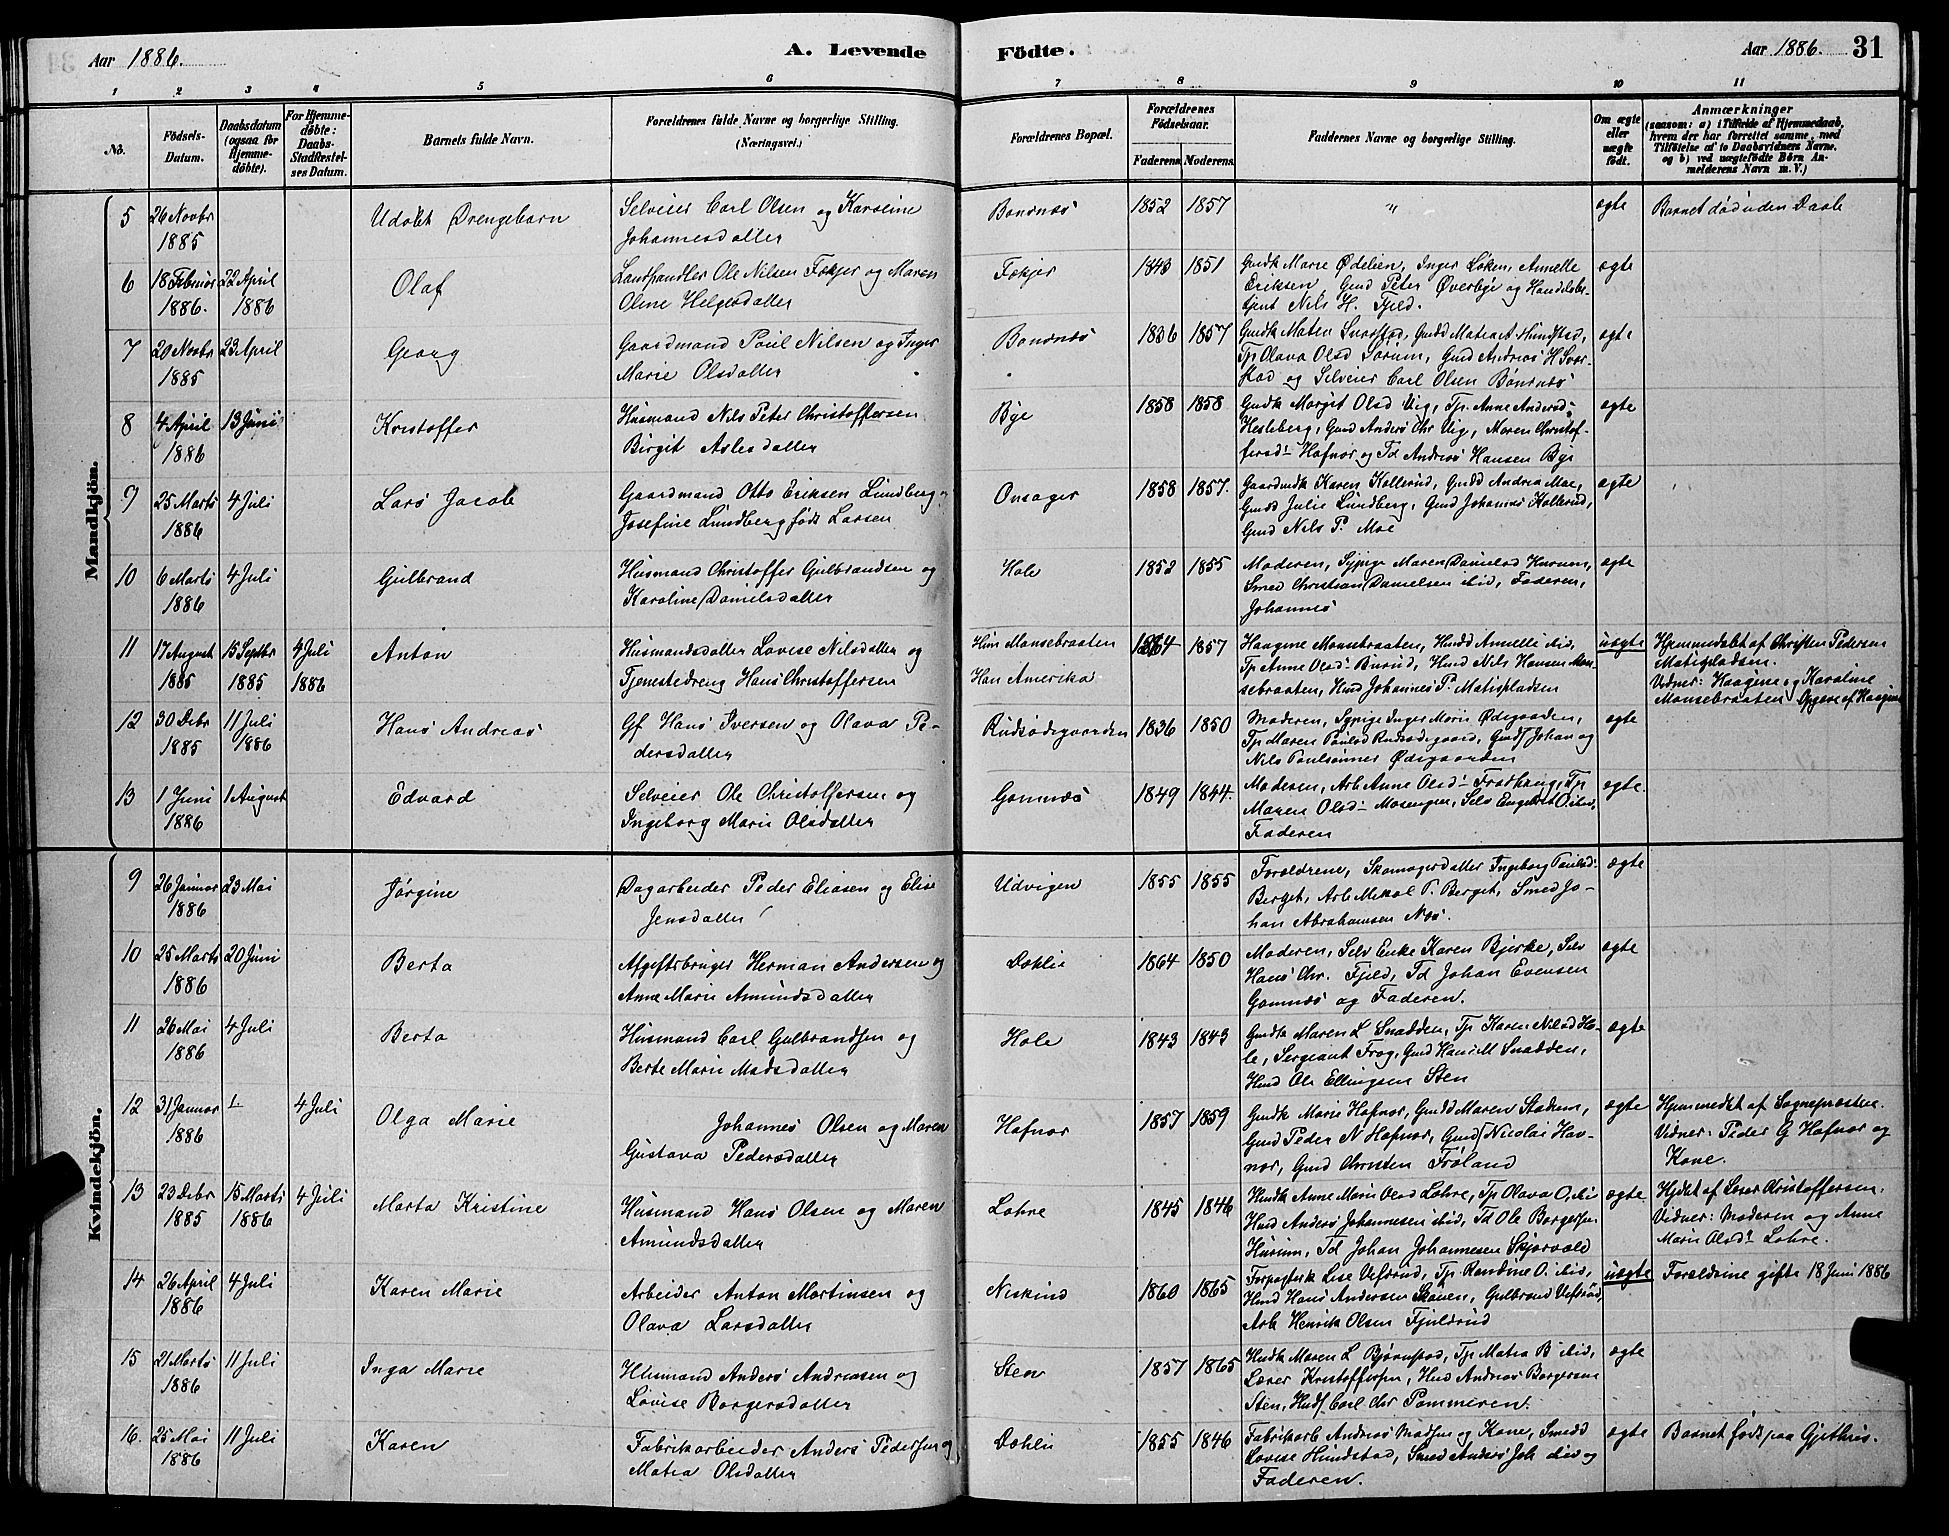 Aar 1886. A. Levende Födte. Aar 1886. 31
1 2 3 4 5 6 7 8 9 10 11
No. Födsels-Datum. Daabsdatum (ogsaa for Hjemme-døbte). For Hjemme-døbte: Daabs-Stadfæstel-ses Datum. Barnets fulde Navn. Forældrenes fulde Navne og borgerlige Stilling. (Næringsvei.) Forældrenes Bopæl. Forældrenes Födselsaar. Faderens Moderens. Faddernes Navne og borgerlige Stilling. Om ægte eller uægte födt. Anmærkninger (saasom: a) i Tilfælde af Hjemmedaab, hvem der har forrettet samme, med Tilföielse af to Daabsvidners Navne, og b) ved uægtefödte Börn An-melderens Navn m. V.)
Mandkjön.
5 26 Novbr Udøbt Drengebarn Selveier Carl Olsen og Karoline Bønsnæs 1852 1857 " ægte Barnet død uden Daab
1885 Johannesdatter
6 18 Februar 22 April Olaf Landhandler Ole Nilsen Fækjer og Maren Fækjer 1843 1851 Gmdk Marie Ødelien, Inger Løken, Annelle ægte
1886. 1886 Oline Helgesdatter Eriksen Gmd Peter Øverbye og Handelsbe-
tjent Nils H. Fjeld.
7 20 Novbr 23 April Georg Gaardmand Poul Nilsen og Inger Bønsnæs 1836 1857 Gmdk Mater Svarstad, Gmdd Mateaet Hundstad, ægte
1885 Marie Olsdatter Tp Olava Olsd Sørum, Gmd Andreas H Svar-
stad og Selveier Carl Olsen Bønsnæs
8 4 April 13 Juni Kristoffer Husmand Nils Peter Christoffersen Bye 1858 1858 Gmdk Margit Olsd Vig, Tp. Anne Andersd: ægte
1886 Birgit Aslesdatter Hesleberg, Gmd Anders Chr Vig, Maren Christof-
fersd: Hafnor og Td Andreas Hansen Bye
9 25 Marts 4 Juli Lars Jacob Gaardmand Otto Eriksen Lundberg og Onsager 1858 1857. Gaardmdk Karen Kollerud, Gmdd Andrea Moe, ægte
1886 Josefine Lundberg født Larsen Gmdd Julie Lundberg, Gmd Johannes Kollerud,
Gmd Nils P. Moe
10 6 Marts 4 Juli Gulbrand Husmand Christoffer Gulbrandsen og Hole 1852 1855 Moderen, Sypige Maren Danielsd Hurum, ægte
1886 Karoline Danielsdatter Smed Christian Danielsen ibid, Faderen,
Johannes
11 17 August 15 Septbr 4 Juli Anton Husmandsdatter Lovise Nilsdatter og Hun Monsebraaten 1864 1857 Haagine Monsebraaten, Hmdd Annette ibid, uægte Hjemmedøbt af Christen Pedersen
1885 1885 1886 Tjenestedreng Hans Christoffersen Han Amerika Tp Anne Olsd: Burud, Hmd Nils Hansen Mon- Matispladsen.
sebraaten, Hmd Johannes P. Matispladsen Vidner: Haagine og Karoline
12 30 Debr 11 Juli Hans Andreas Gf Hans Iversen og Olava Pe- Rudsødegaarden 1836 1850 Moderen, Sypige Inger Marie Ødegaarden, ægte Monsebraaten Opgave af Haagine
1885 1886 dersdatter Tp Maren Poulsd Rudsødegaard, Gmdf Johan og
Nils Poulsønner Ødegaarden
13 1 Juni 1 August Edvard Selveier Ole Christoffersen og Gomnæs 1849 1844. Moderen, Arb Anne Olsd: Frøshaug, Tp ægte.
1886 Ingeborg Marie Olsdatter Maren Olsd: Mosengen, Selv Engebret Oilen,
Faderen
Kvindekjön.
9 26 Januar 23 Mai Jørgine Dagarbeider Peder Eliasen og Elise Udvigen 1855 1855 Forældrene, Skomagerdatter Ingeborg Poulsd: ægte
1886 Jensdatter Berget, Arb Mikal P. Berget, Smed Jo-
han Abrahamsen Næs.
10 25 Marts 20 Juni Berta Afgiftsbruger Herman Andersen og Døhlie 1864 1850 Moderen, Selv Enke Karen Bjerke, Selv ægte
1886 Anne Marie Amundsdatter Hans Chr. Fjeld, Td Johan Evensen
Gomnæs og Faderen.
11 26 Mai 4 Juli Berta Husmand Carl Gulbrandsen og Hole 1843 1843 Gmdk Maren L Snadden, Tp Karen Nilsd Ho- ægte
1886 Berte Marie Madsdatter le, Sergeant Frog, Gmd Hans M Snadden,
Hmd Ole Ellingsen Sten
12 31 Januar 1. 4 Juli Olga Marie Johannes Olsen og Maren Hafnor 1857 1859 Gmdk Marie Hafnor, Gmdd Maren Stadum, ægte Hjemmedøbt af Sognepræsten.
1886 Gustava Pedersdatter Gmd Peder N Hafnor, Gmdf Nicolai Hav- Vidner: Peder G Hafnor og
nor, Gmd Christen Frøland Kone.
13 23 Debr 15 Marts 4 Juli Marta Kristine Husmand Hans Olsen og Maren Lohre 1845 1846 Hmdk Anne Marie Olsd Lohre, Tp Olava O. ibid ægte Hjdøbt af Lærer Christoffersen.
1885 1886 Amundsdatter Hmd Anders Johannesen ibid, Td Ole Borgersen Vidner: Moderen og Anne
Hurum, Td Johan Johannesen Skjørvold Marie Olsd: Lohre.
14 26 April 4 Juli Karen Marie Arbeider Anton Martinsen og Neskind 1860 1865 Forpagterk Lise Vefsrud, Tp. Randine O. ibid, uægte Forældrene gifte 18 Juni 1886
1886 Olava Larsdatter Hmd Hans Andersen Skauen, Gulbrand Vefsrud,
Arb Henrik Olsen Fjeldrud
15 21 Marts 11 Juli Inga Marie Husmand Anders Andreasen og Sten 1857 1865 Hmdk Maren L Bjørnstad, Tp Matea B ibid, ægte
1886 Lovise Borgersdatter Lærer Kristoffersen, Hmd Andreas Borgersen
Sten, Hmdf Carl Chr Pommeren.
16. 25 Mai 11 Juli Karen Fabrikarbeider Anders Pedersen og Døhlie 1855 1846 Fabrikarb Andreas Madsen og Kone, Smedd ægte Barnet født paa Gjethus.
1886 Matea Olsdatter Lovise Hundstad, Smed Anders Joh ibid og
Faderen.